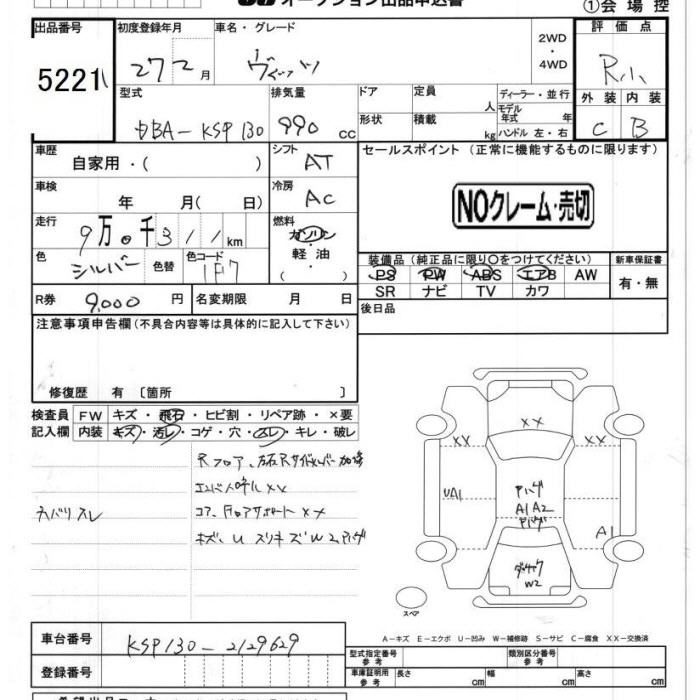 オークション出品申込書
①会場控
出品番号
5221
初度登録年月
27 2月
車名・グレード
ヴィッツ
2WD
・
4WD
評価点
R小
外装 内装
C B
型式
DBA-KSP130
排気量
990 cc
ドア
形状
定員 人
積載 kg
ディーラー・並行
モデル年式 年
ハンドル 左・右
車歴
自家用・( )
シフト
AT
セールスポイント(正常に機能するものに限ります)
NOクレーム・売切
車検
年 月( 日)
冷房
AC
走行
9万0千311km
燃料
ガソリン
軽油
( ・ )
色
シルバー
色替
色コード
1F7
装備品(純正品に限り○をつけてください)
PS PW ABS エアB AW
SR ナビ TV カワ
新車保証書
有・無
R券 9,000円
名変期限 月 日
後日品
注意事項申告欄(不具合内容等は具体的に記入して下さい)
修復歴 有〔箇所 〕
検査員
記入欄
FW キズ・飛石・ヒビ割・リペア跡・×要
内装 キズ・汚レ・コゲ・穴・スレ・キレ・破レ
コア、Fロアサポート××
XX
XX
XX
UA1
Pハゲ
A1 A2
Pハゲ
A1
W2
スペア
A-キズ E-エクボ U-凹み W-補修跡 S-サビ C-腐食 XX-交換済
車台番号
KSP130-2129629
登録番号
型式指定番号
参考
類別区分番号
参考
車庫証明用
参考
長さ cm
幅 cm
高さ cm